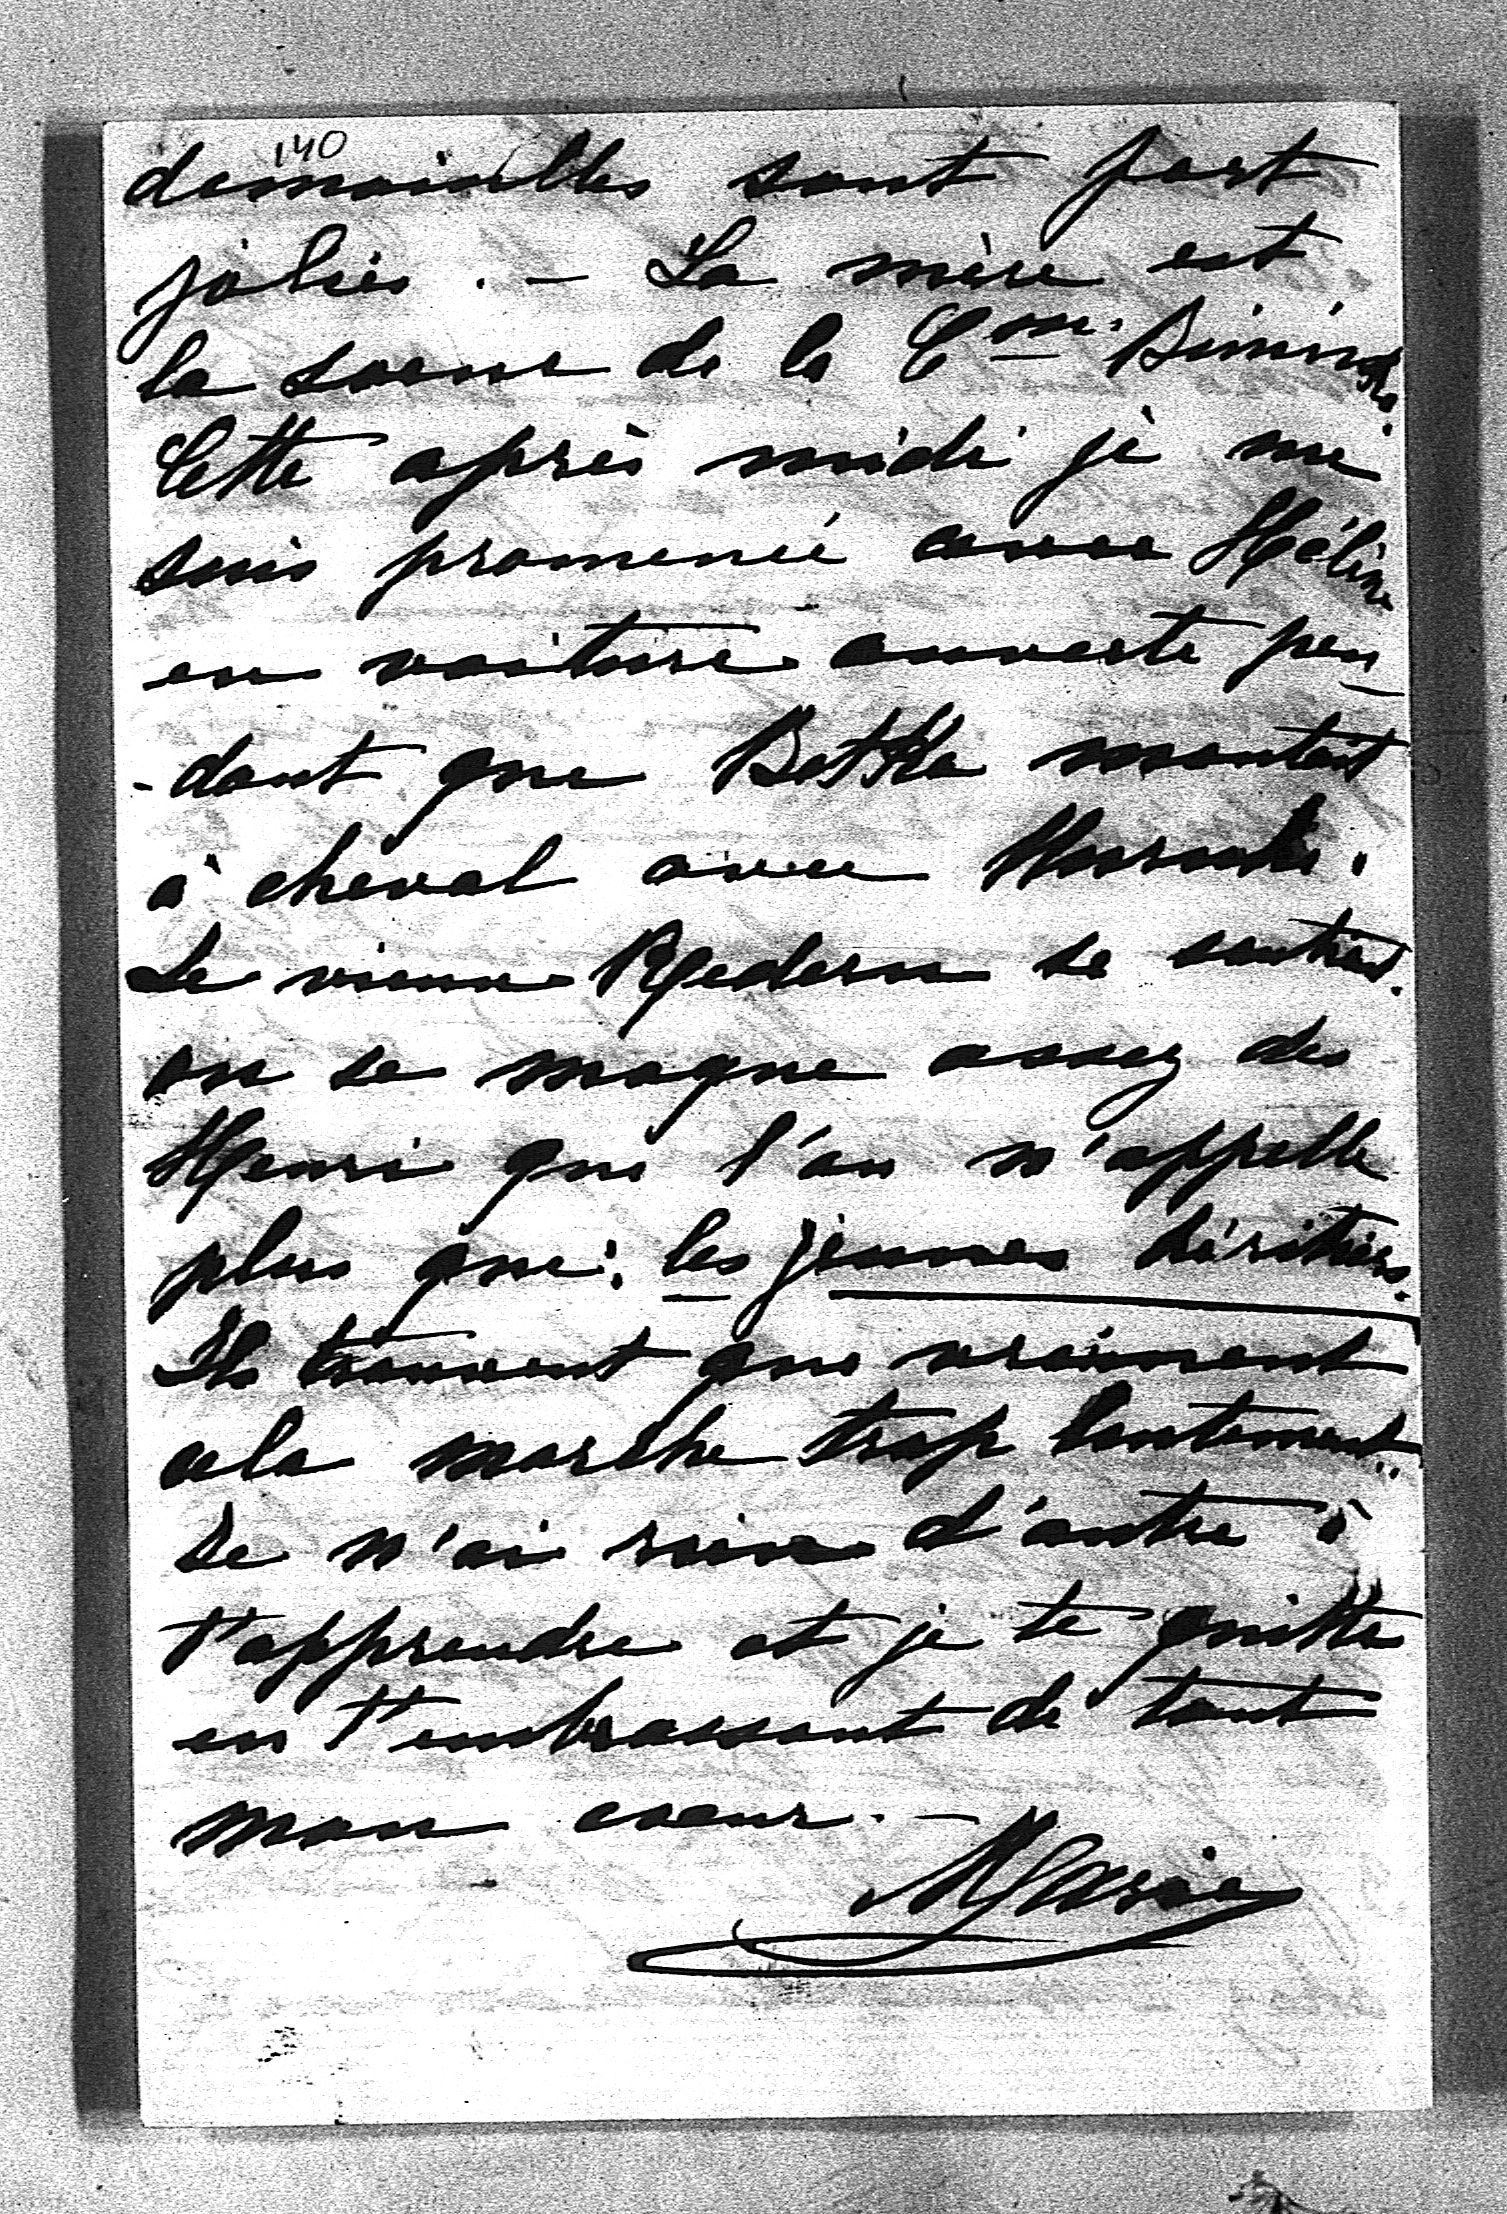 140
demoiselles sont fort
jolies. — La mère est
la soeur de la Csse
Cette après midi je me
suis promenée avec Hélène
en voiture ouverte pen
-dant que Betka montait
à cheval avec
Le vieux Redern se soutient.
on se moque assez des
Henri que l'on n'appelle
plus que: les jeunes héritiers.
Ils trouvent que vraiment
cela marche trop lentement..
Je n'ai rien d'autre à
t'apprendre et je te quitte
en t'embrassant de tout
mon coeur. —
Marie